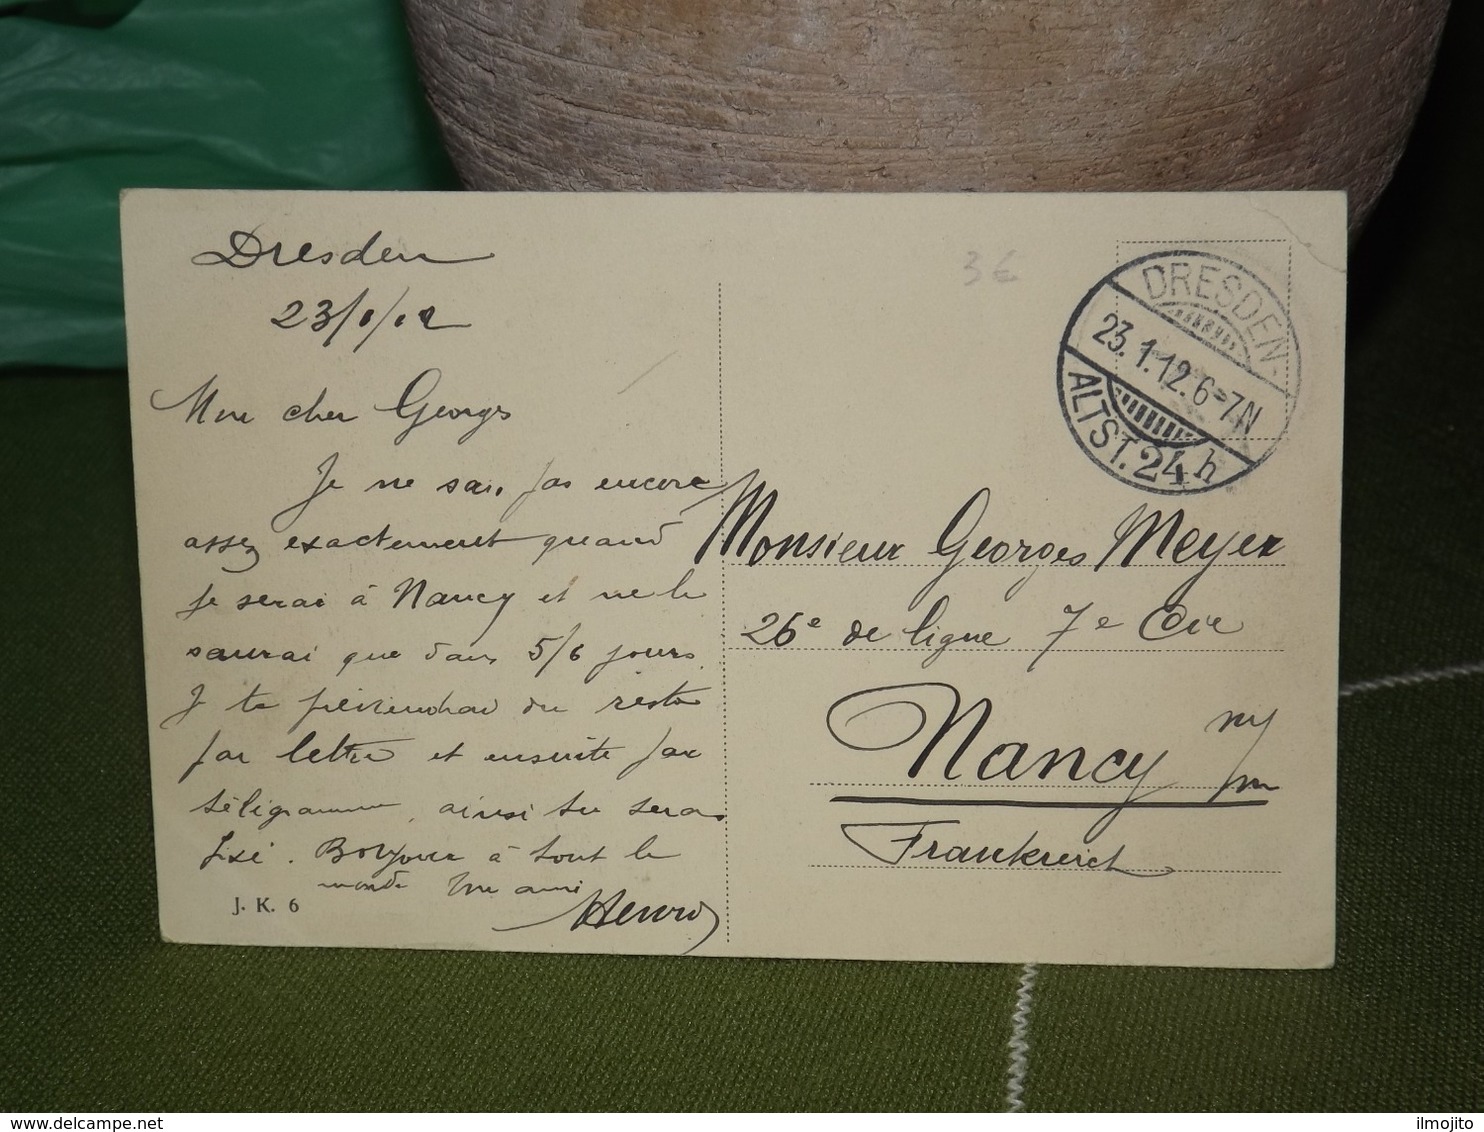 Dresden
23/1/12
Mon cher Georges
Je ne sais pas encore
assez exactement quand
je serai à Nancy et ne le
saurai que dans 5/6 jours.
Je te préviendrai du reste
par lettre et ensuite par
télégramme, ainsi tu seras
fixé. Bonjour à tout le
monde Ton ami
Henri
J. K. 6
3€
DRESDEN
23.1.12.6-7N
ALTST. 24 h
Monsieur Georges Meyer
26e de ligne 7e Cie
Nancy
Frankreich
ilmojito